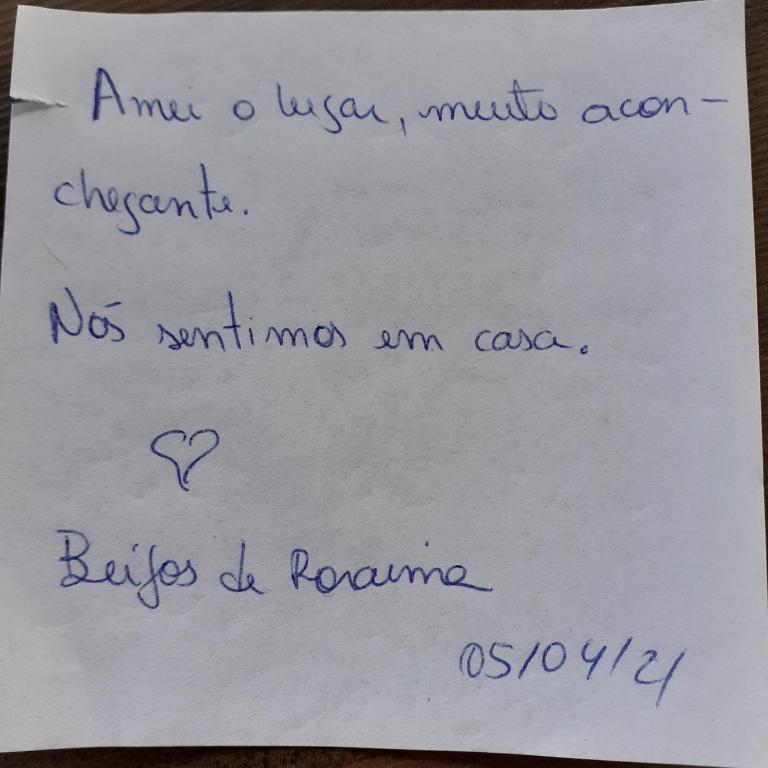 Amei o lugar, muito acon-
chegante.
Nós sentimos em casa.
Beijos de Roraima
05/04/21